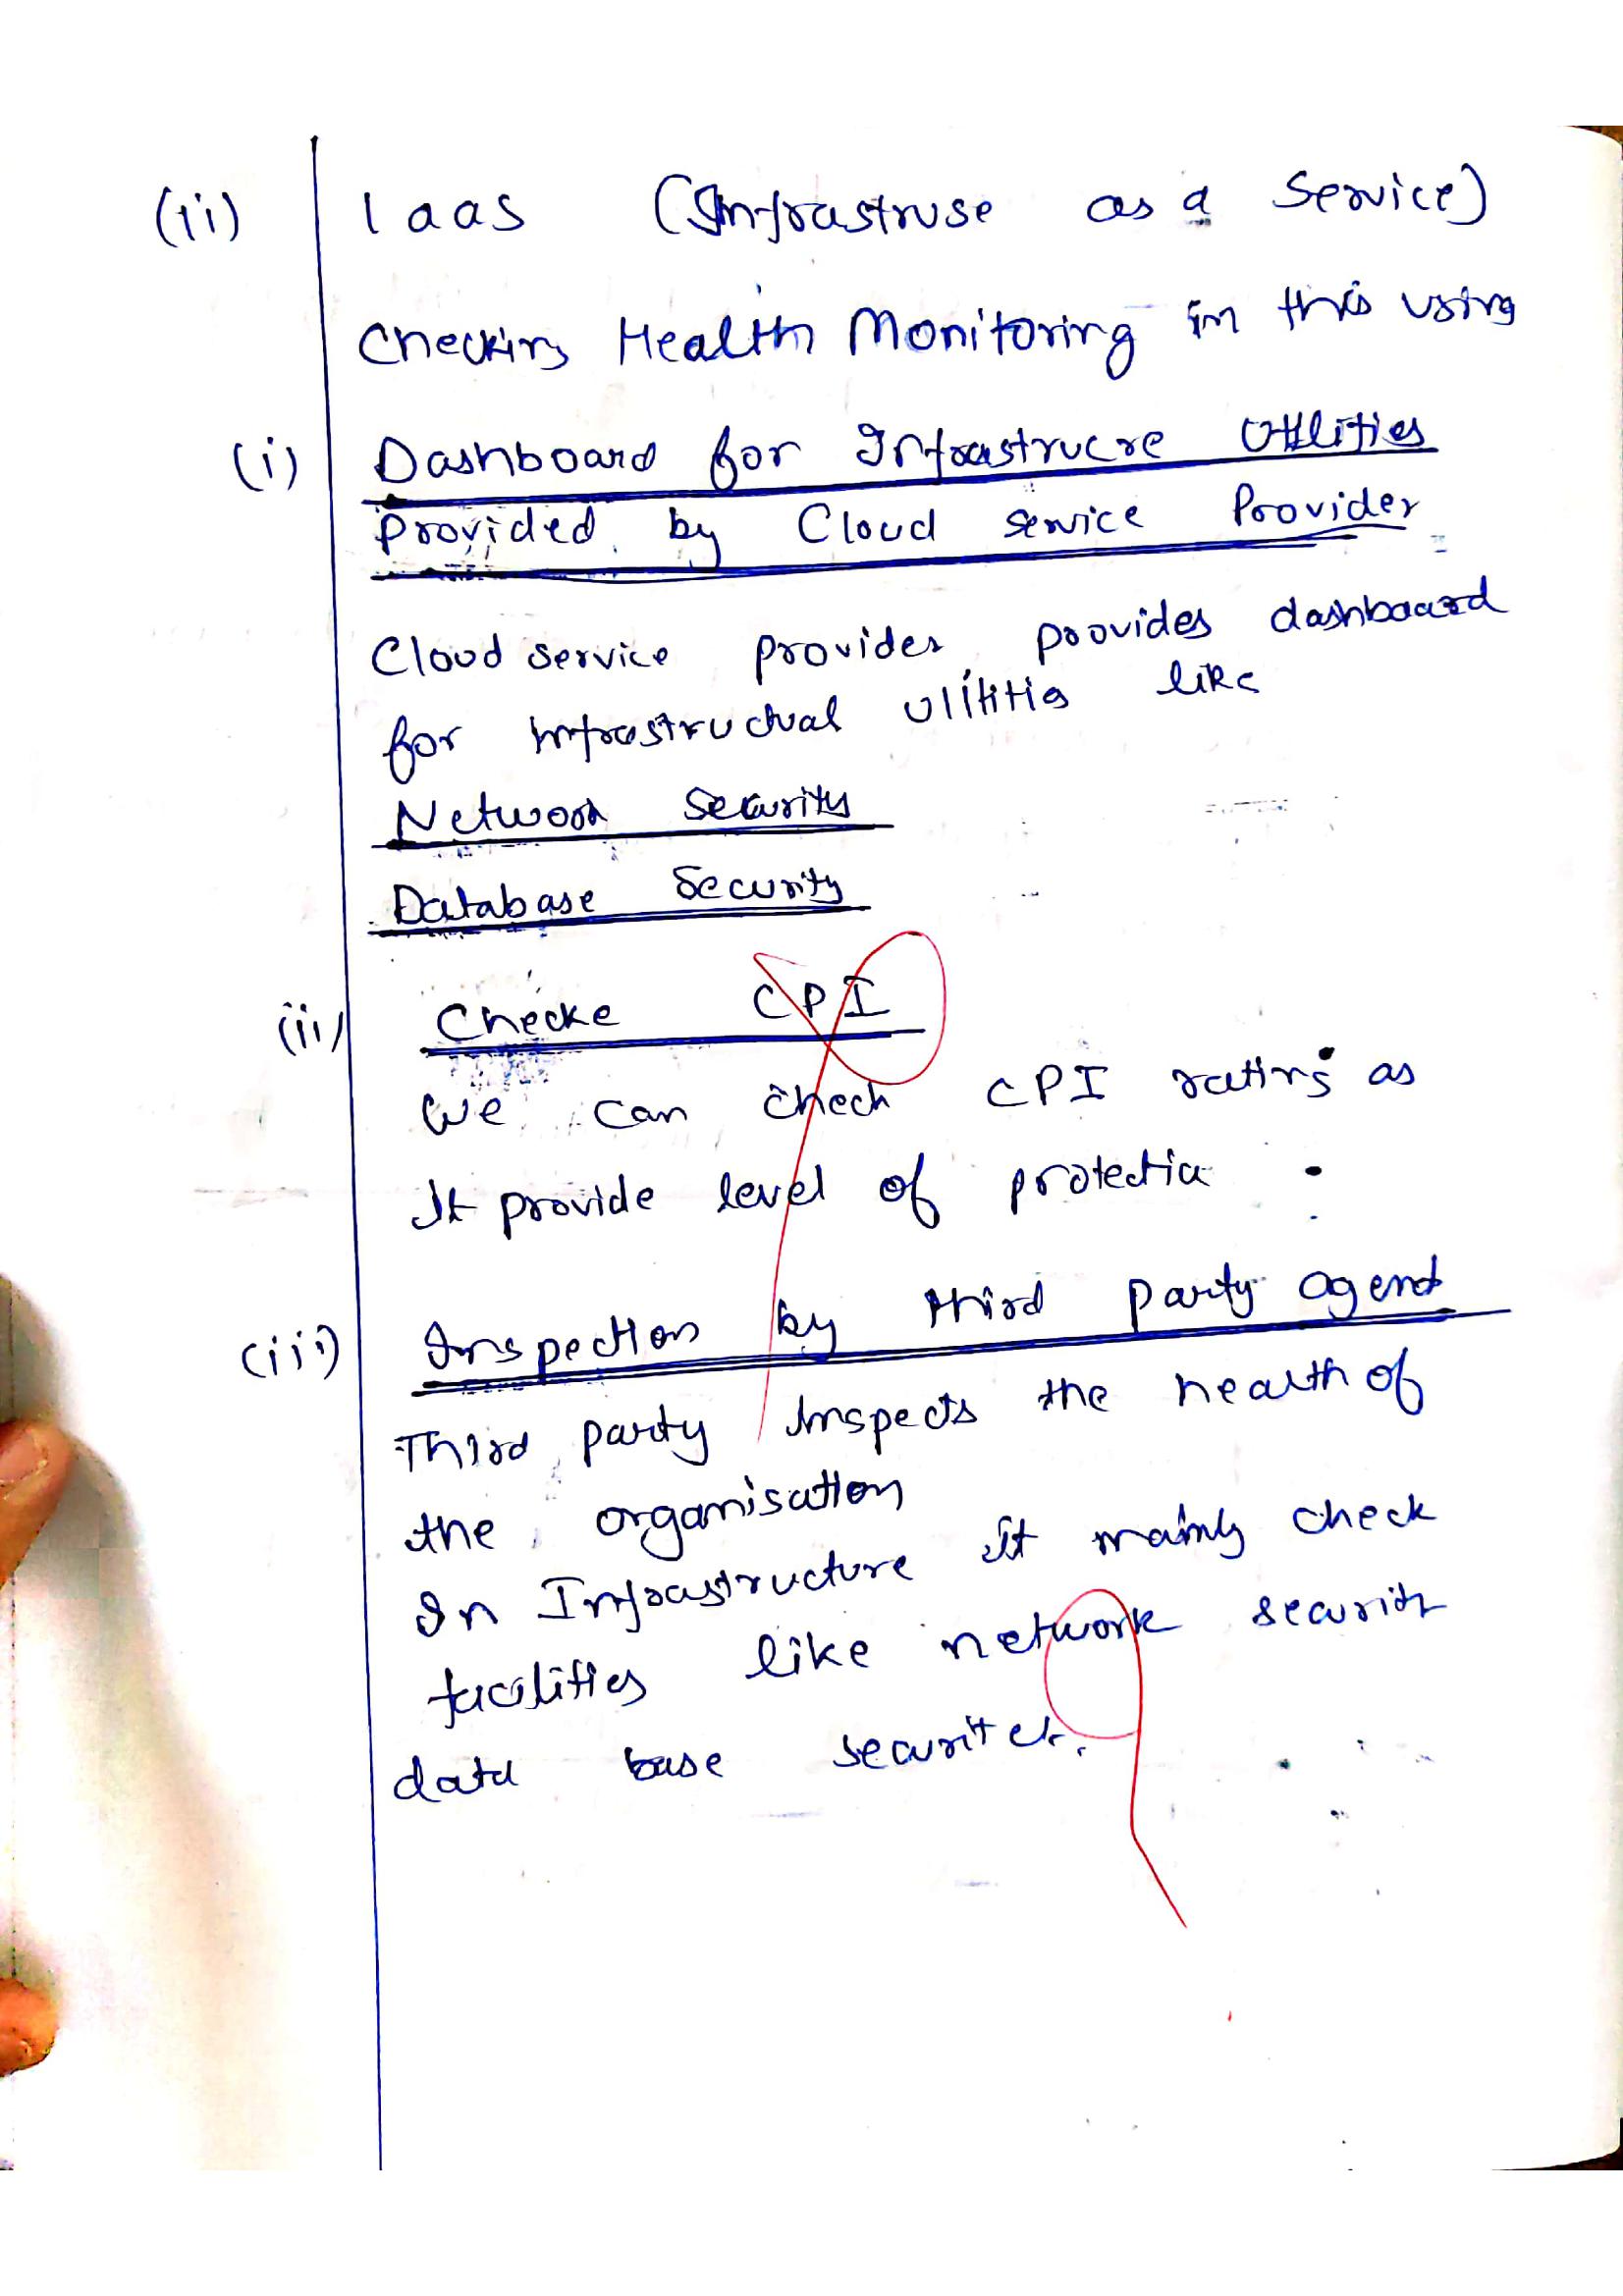 (ii) Iaas (Infrastruse as a Service)
Checking Health Monitoring in this using
(i) Dashboard for Infrastrucre Utilities
Provided by Cloud service Provider
Cloud service provider provides dashboard
for infrastructual utilities like
Network Security
Database Security
(ii) Checke CPI
We can check CPI rating as
It provide level of protectia
(iii) Inspection by third party agent
Third party Inspects the health of
the organisation
In Infrastructure it mainly check
facilities like network security
data base